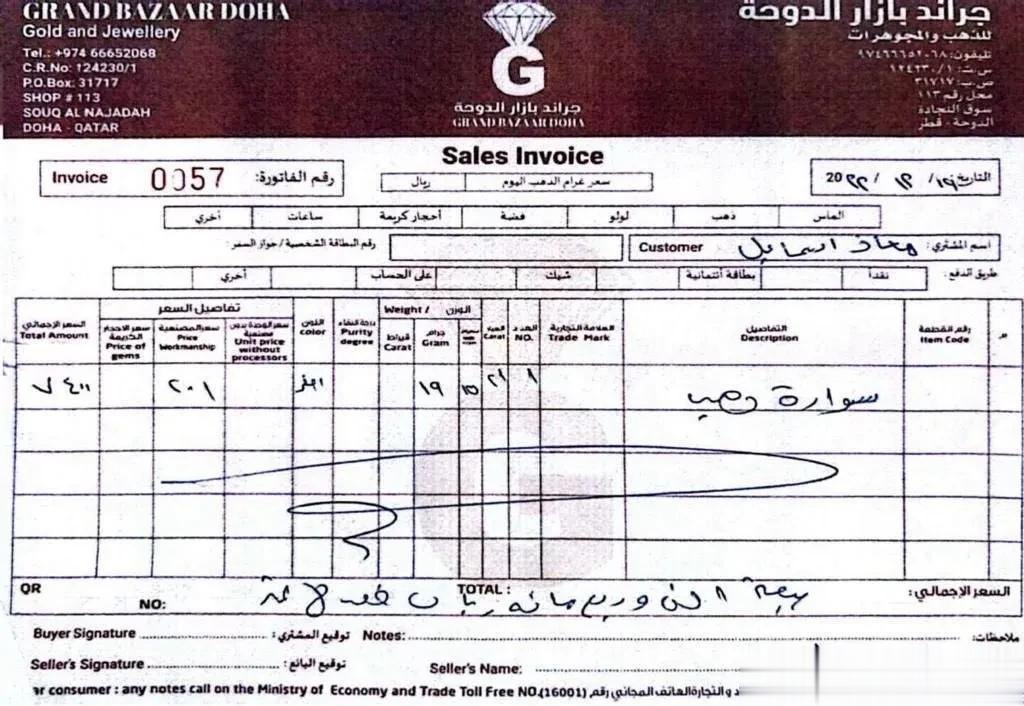 GRAND BAZAAR DOHA
Gold and Jewellery
Tel.: +974 66652068
C.R.No: 124230/1
P.O.Box: 31717
SHOP # 113
SOUQ AL NAJADAH
DOHA - QATAR
G
جراند بازار الدوحة
GRAND BAZAAR DOHA
جراند بازار الدوحة
للذهب والمجوهرات
تليفون: ٩٧٤٦٦٦٥٢٠٦٨
س.ت: ١٢٤٢٣٠/١
ص.ب: ٣١٧١٧
محل رقم ١١٣
سوق النجادة
الدوحة - قطر
Sales Invoice
Invoice 0057 رقم الفاتورة:
سعر غرام الذهب اليوم ريال
التاريخ ١٩/ ١٢/ ٢٢ 20
الماس ذهب لولو فضة أحجار كريمة ساعات أخري
اسم المشتري: معاذ اسماعيل Customer
رقم البطاقة الشخصية / جواز السفر:
طريق الدفع: نقداً بطاقة أئتمانية شيك على الحساب أخري
م
رقم القطعة Item Code
التفاصيل Description
العلامة التجارية Trade Mark
العدد NO.
العيار Carat
الوزن Weight /
جرام Gram
قيراط Carat
درجة النقاء Purity degree
اللون color
تفاصيل السعر
سعر الوحدة بدون مصنعية Unit price without processors
سعر المصنعية Price Workmanship
سعر الاحجار الكريمة Price of gems
السعر الإجمالي Total Amount
سوارة ذهب ١ ٢١ ١٥ ١٩ ٢٠١ ٧٤٠٠
السعر الإجمالي: TOTAL : سبعة الف و اربع مائة ريال فقط لا غير
QR
NO:
Buyer Signature توقيع المشتري: Notes: ملاحظات:
Seller's Signature توقيع البائع: Seller's Name:
ar consumer : any notes call on the Ministry of Economy and Trade Toll Free NO.(16001) د والتجارة الهاتف المجاني رقم